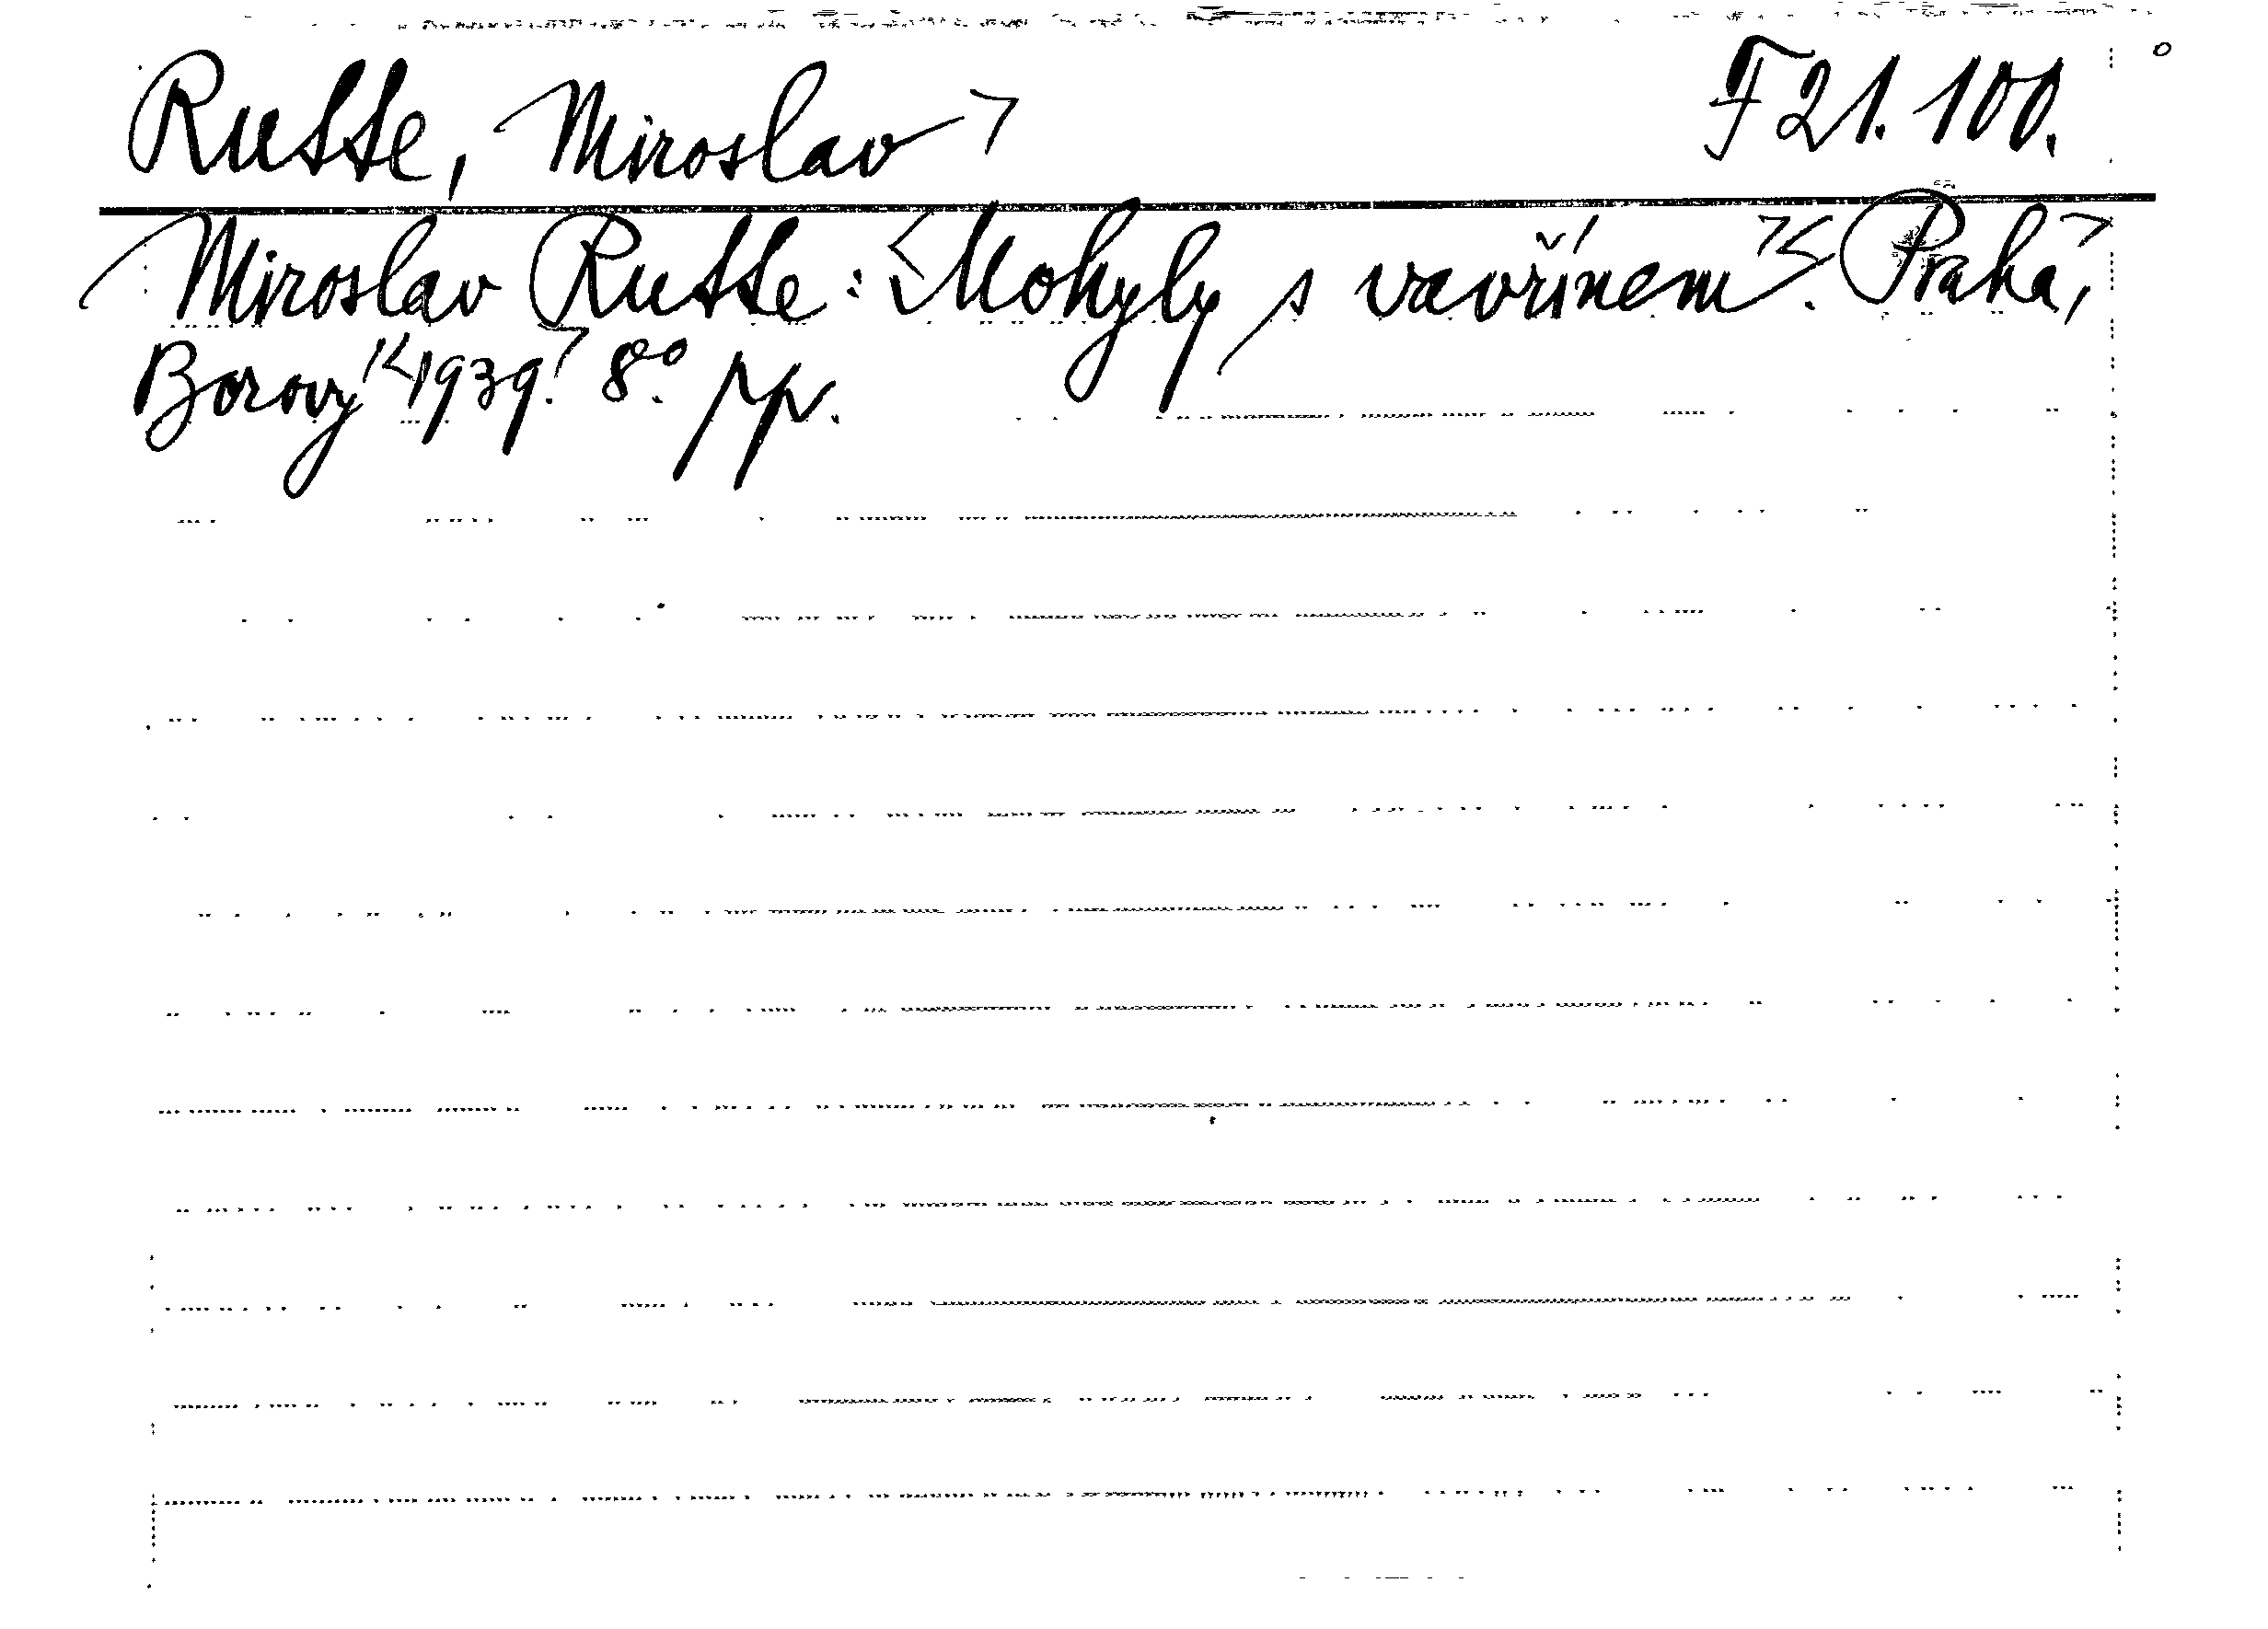 Rutte, Miroslav F 21.100.
Miroslav Rutte: Mohyly s vavřínem. Praha,
Borový 1939. 8°. pp.